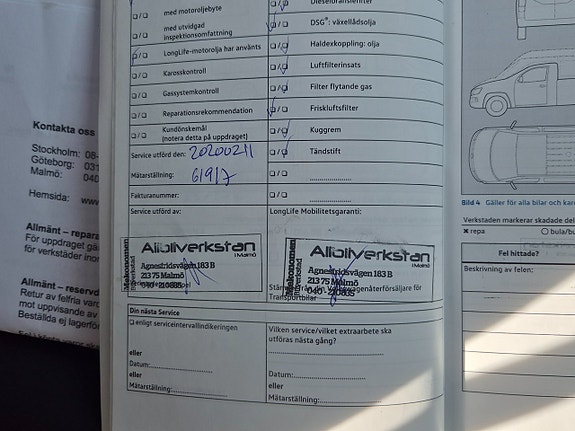 Kontakta oss
Stockholm: 08-
Göteborg: 031
Malmö: 040
Hemsida: www
Allmänt - repara
För uppdraget gä
för verkstäder inor
Allmänt - reservd
Retur av felfria varo
mot uppvisande av
Beställda ej lagerför
med motoroljebyte
med utvidgad
inspektionsomfattning
LongLife-motorolja har använts
Karosskontroll
Gassystemkontroll
Reparationsrekommendation
Kundönskemål
(notera detta på uppdraget)
Service utförd den: 20200211
Mätarställning: 61917
Fakturanummer:
Service utförd av:
Dieselfilter
DSG®: växellådsolja
Haldexkoppling: olja
Luftfilterinsats
Filter flytande gas
Friskluftsfilter
Kuggrem
Tändstift
LongLife Mobilitetsgaranti:
Mekonomen
Bilverkstad
Allbilverkstan
i Malmö
Agnesfridsvägen 183 B
213 75 Malmö
040 - 210835
Mekonomen
Allbilverkstan
i Malmö
Agnesfridsvägen 183 B
213 75 Malmö
040 - 210835
Transportbilar
Din nästa Service
enligt serviceintervallindikeringen
eller
Datum:
eller
Mätarställning:
Vilken service/vilket extraarbete ska
utföras nästa gång?
Datum:
eller
Mätarställning:
Bild 4 Gäller för alla bilar och karos
Verkstaden markerar skadade del
repa
bula/bu
Fel hittade?
Beskrivning av felen: